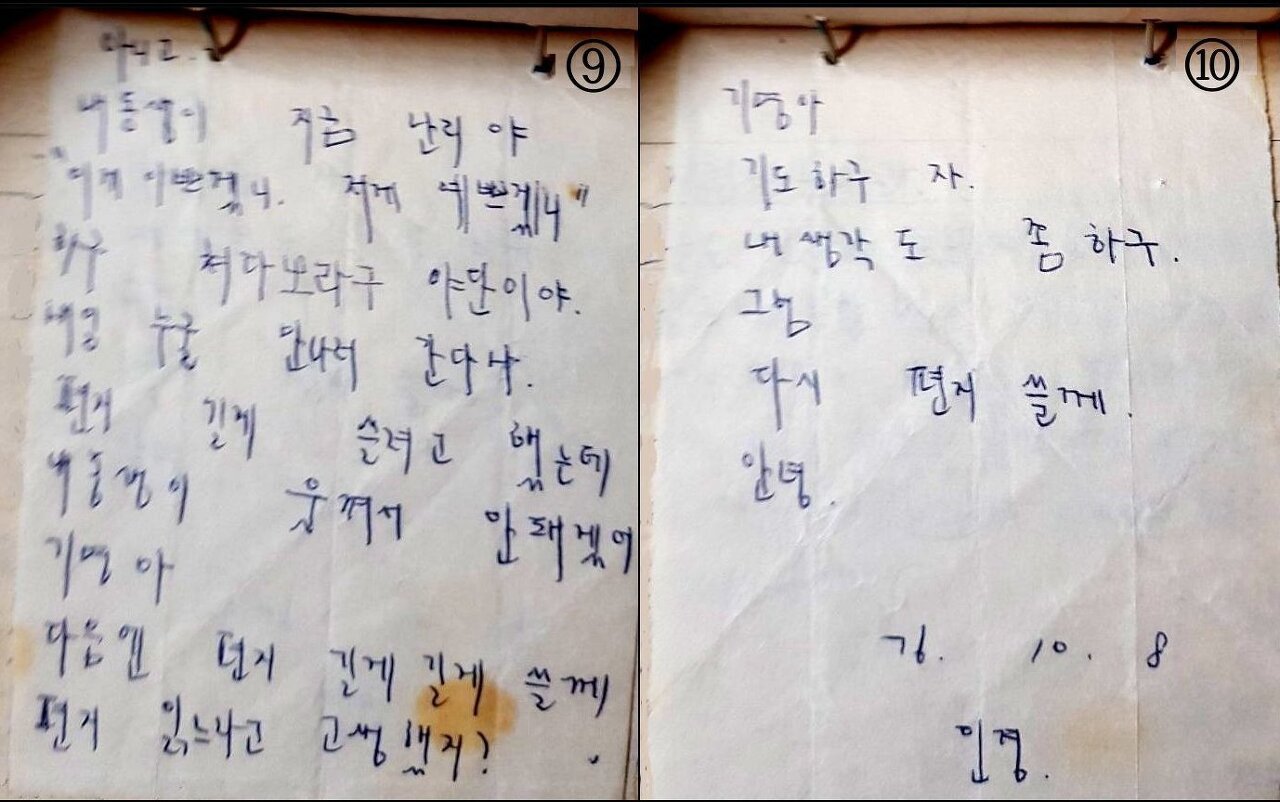 ⑨
아니고.
내동생이 지금 난리 야
"이게 이쁘겠니. 저게 예쁘겠니"
하구 쳐다보라구 야단이야.
매일 누굴 만나러 간다나.
편지 길게 쓸려고 했는데
내동생이 웃껴서 안돼겠어
기영아
다음엔 편지 길게 길게 쓸께
편지 읽느냐고 고생했지?
⑩
기영아
기도하구 자.
내 생각도 좀 하구.
그럼
다시 편지 쓸께.
안녕.
76. 10. 8
인경.